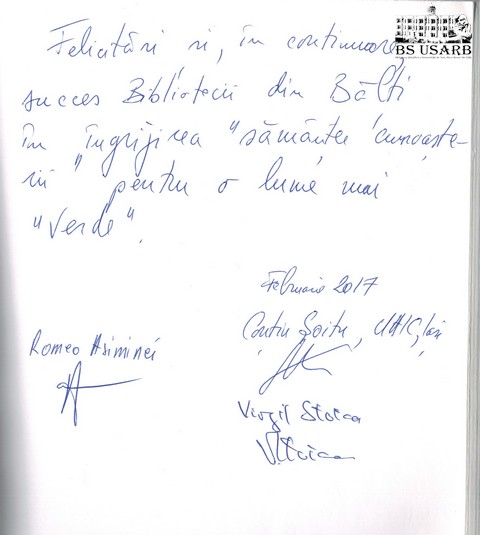 BS USARB
Felicitări și, în continuare,
succes Bibliotecii din Bălți
în îngrijirea "sămânței cunoaște-
rii" pentru o lume mai
"verde".
Februarie 2017
Contiu Șoitu, UAIC, Iași
Romeo Asiminei
Virgil Stoica
VStoica